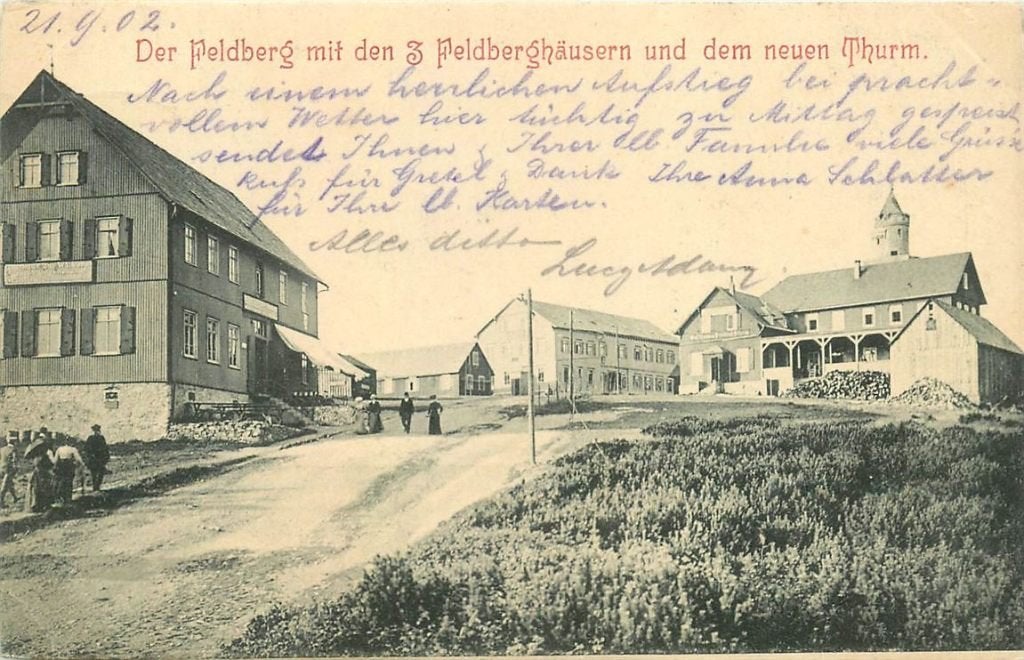 21.9.02.
Der Feldberg mit den 3 Feldberghäusern und dem neuen Thurm.
Nach einem herrlichen Aufstieg bei pracht-
vollem Wetter hier tüchtig zu Mittag gespeist
sendet Ihnen & Ihrer lb Familie viele Grüsse
Kuß für Gretel & Dank Ihre Anna Schlatter
für Ihre lb. Karten.
Alles ditto
Lucy Adam